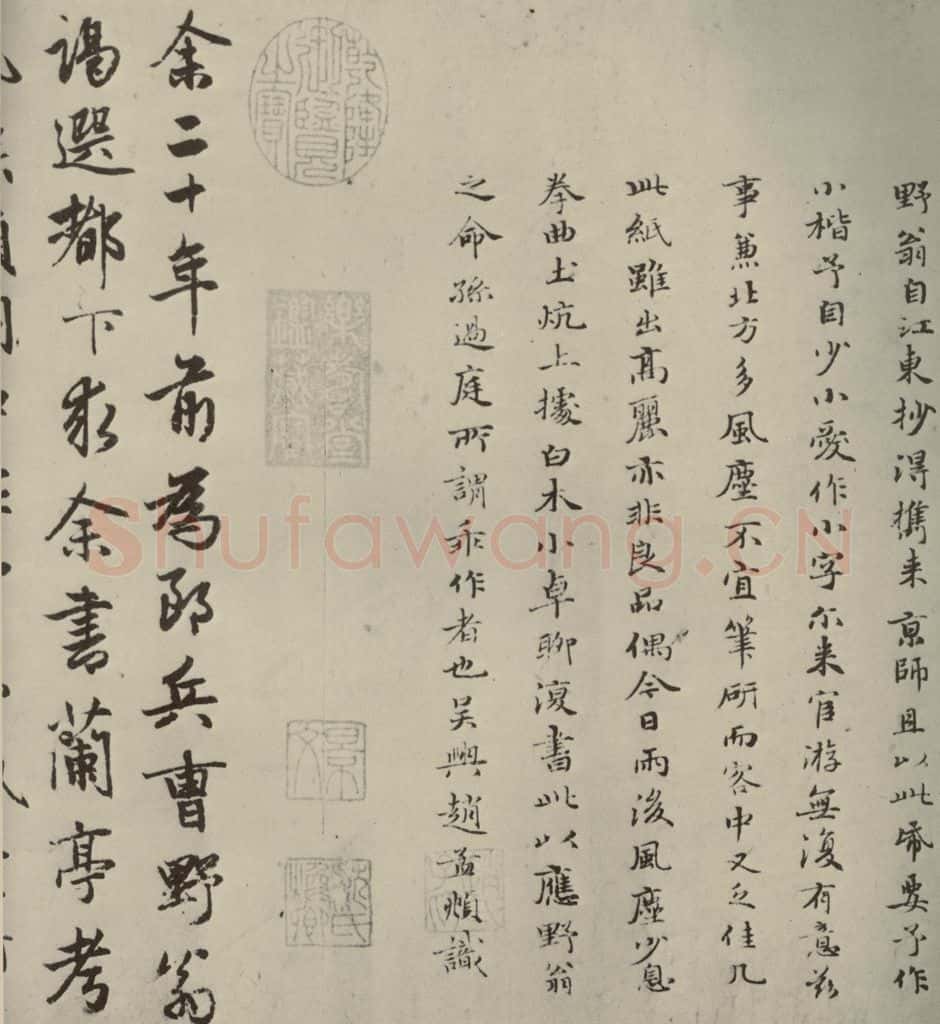 野翁自江東抄得攜来京師且以此帋要予作
小楷予自少小愛作小字尓来宦游無復有意茲
事兼北方多風塵不宜筆研而客中又乏佳几
此紙雖出高麗亦非良品偶今日雨後風塵少息
拳曲土炕上據白木小卓聊復書此以應野翁
之命孫過庭所謂乖作者也吳興趙孟頫識
乾隆御覽之寶
余二十年前為郎兵曹野翁
謁選都下求余書蘭亭考
Shufawang.CN